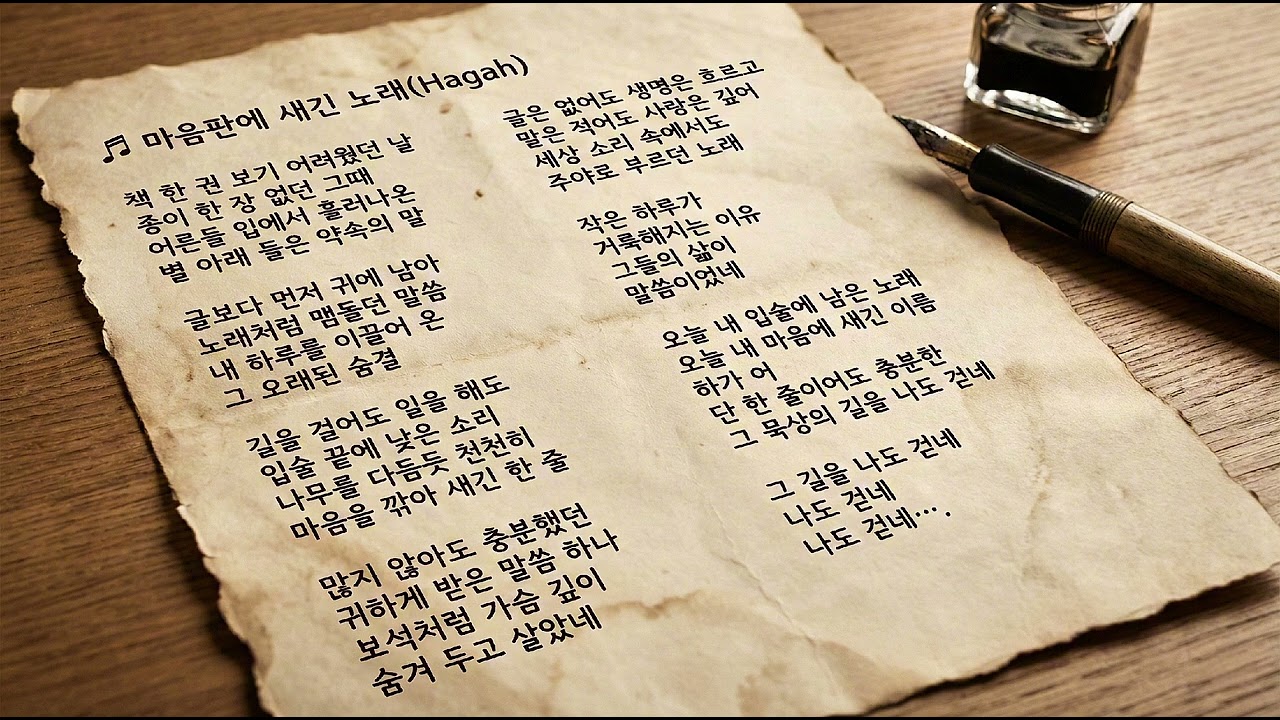 ♫ 마음판에 새긴 노래(Hagah)
책 한 권 보기 어려웠던 날
종이 한 장 없던 그때
어른들 입에서 흘러나온
별 아래 들은 약속의 말
글보다 먼저 귀에 남아
노래처럼 맴돌던 말씀
내 하루를 이끌어 온
그 오래된 숨결
길을 걸어도 일을 해도
입술 끝에 낮은 소리
나무를 다듬듯 천천히
마음을 깎아 새긴 한 줄
많지 않아도 충분했던
귀하게 받은 말씀 하나
보석처럼 가슴 깊이
숨겨 두고 살았네
글은 없어도 생명은 흐르고
말은 적어도 사랑은 깊어
세상 소리 속에서도
주야로 부르던 노래
작은 하루가
거룩해지는 이유
그들의 삶이
말씀이었네
오늘 내 입술에 남은 노래
오늘 내 마음에 새긴 이름
하가 어
단 한 줄이어도 충분한
그 묵상의 길을 나도 걷네
그 길을 나도 걷네
나도 걷네
나도 걷네….